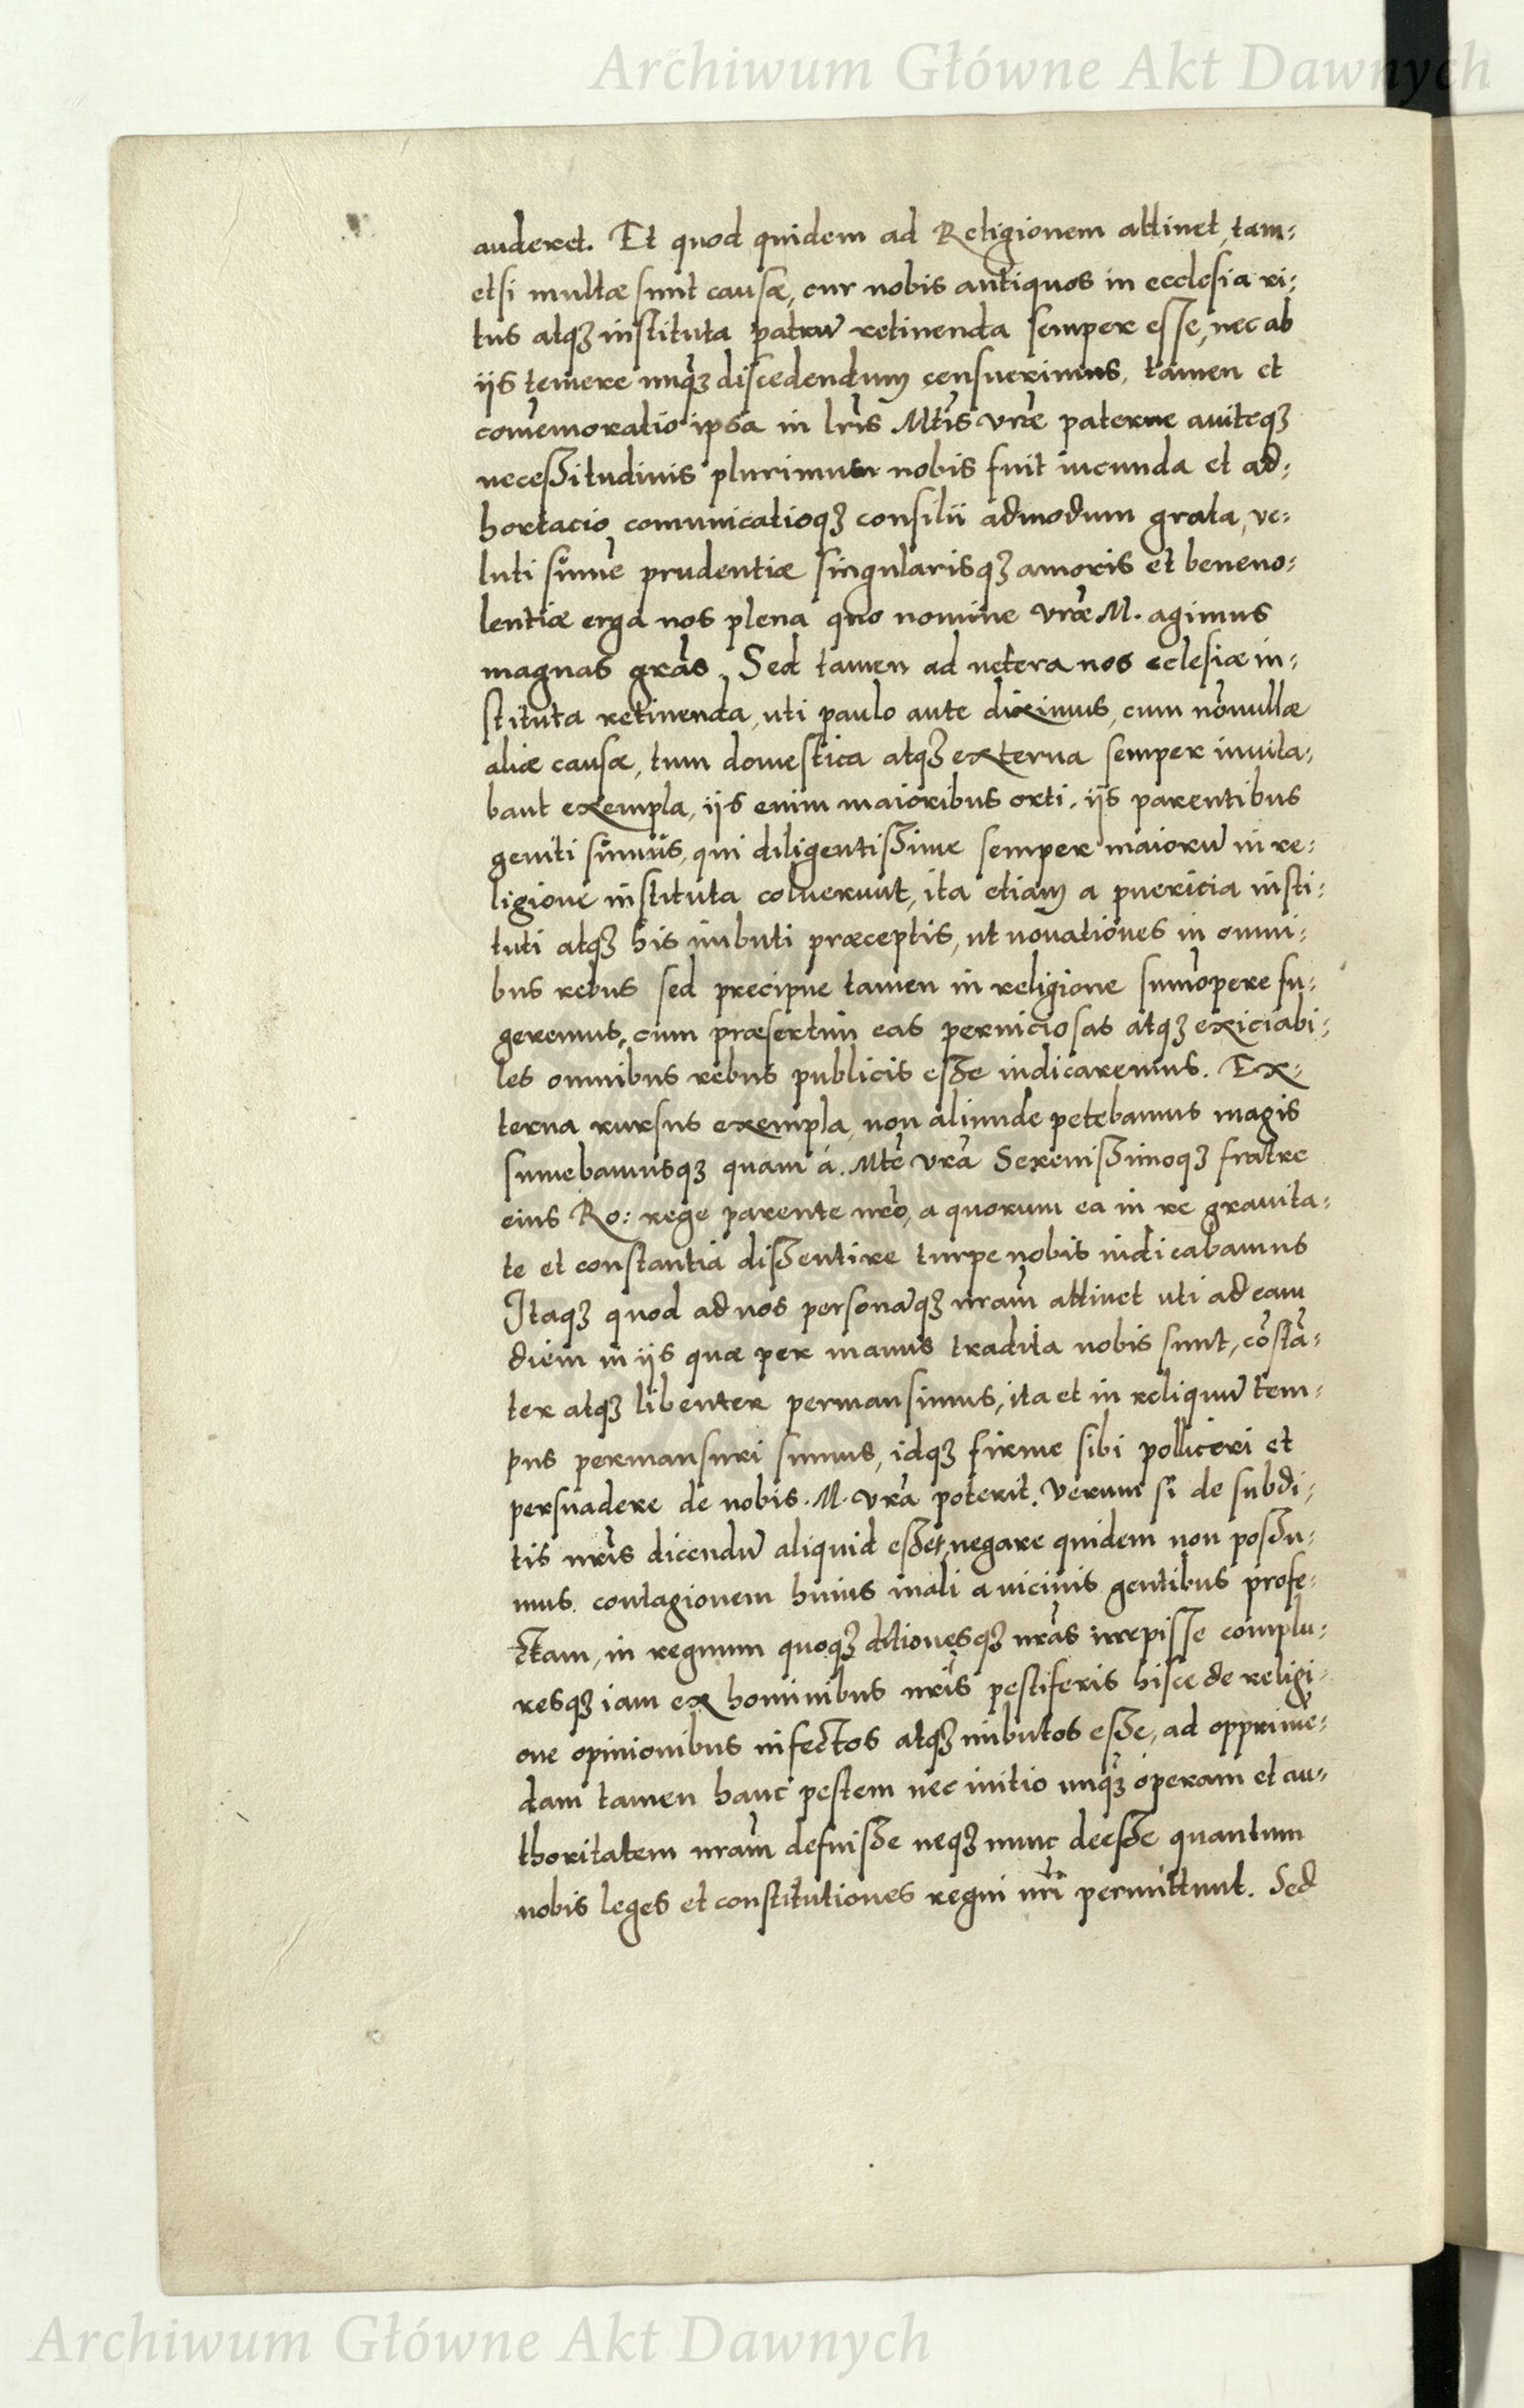 Archiwum Główne Akt Dawnych
auderet. Et quod quidem ad Religionem attinet, tam:
etsi multæ sunt causæ, cur nobis antiquos in ecclesia ri:
tus atqꝫ instituta patrū retinenda semper esse, nec ab
ijs temere unqꝫ discedendum censuerimus, tamen et
com̃emoratio ipsa in lr̃is Mt̃is vr̃æ paterne auiteqꝫ
necessitudinis plurimum nobis fuit iucunda et ad:
hortacio comunicatioqꝫ consilii admodum grata, ve:
luti sum̃e prudentiæ singularisqꝫ amoris et beneuo:
lentiæ erga nos plena quo nomine vr̃æ M. agimus
magnas gr̃as. Sed tamen ad uetera nos eclesiæ in:
stituta retinenda, uti paulo ante diximus, cum nõnullæ
aliæ causæ, tum domestica atqꝫ externa semper inuita:
bant exempla, ijs enim maioribus orti, ijs parentibus
geniti sumus, qui diligentissime semper maiorū in re:
ligione instituta coluerunt, ita etiam a puericia insti:
tuti atqꝫ his imbuti præceptis, ut nouationes in omni:
bus rebus sed precipue tamen in religione sum̃opere fu:
geremus, cum præsertim eas perniciosas atqꝫ exiciabi:
les omnibus rebus publicis esse iudicaremus. Ex:
terna rursus exempla, non aliunde petebamus magis
sumebamusqꝫ quam á. Mt̃e vr̃a Serenissimoqꝫ fratre
eius Ro: rege parente nr̃o, a quorum ea in re grauita:
te et constantia dissentire turpe nobis iudicabamus
Itaqꝫ quod ad nos personāqꝫ nr̃am attinet uti ad eam
diem in ijs quæ per manus tradita nobis sunt, cõstã:
ter atqꝫ libenter permansimus, ita et in reliquū tem:
pus permansuri sumus, idqꝫ firme sibi polliceri et
persuadere de nobis. M. vr̃a poterit. Verum si de subdi:
tis nr̃is dicendū aliquid esset, negare quidem non possu:
mus contagionem huius mali a uicinis gentibus profe:
ctam, in regnum quoqꝫ ditionesqꝫ nr̃as irrepisse complu:
resqꝫ iam ex hominibus nr̃is pestiferis hisce de religi:
one opinionibus infectos atqꝫ imbutos esse, ad opprimẽ:
dam tamen hanc pestem nec initio unqꝫ operam et au:
thoritatem nr̃am defuisse neqꝫ nunc deesse quantum
nobis leges et constitutiones regni nr̃i permittunt. Sed
Archiwum Główne Akt Dawnych